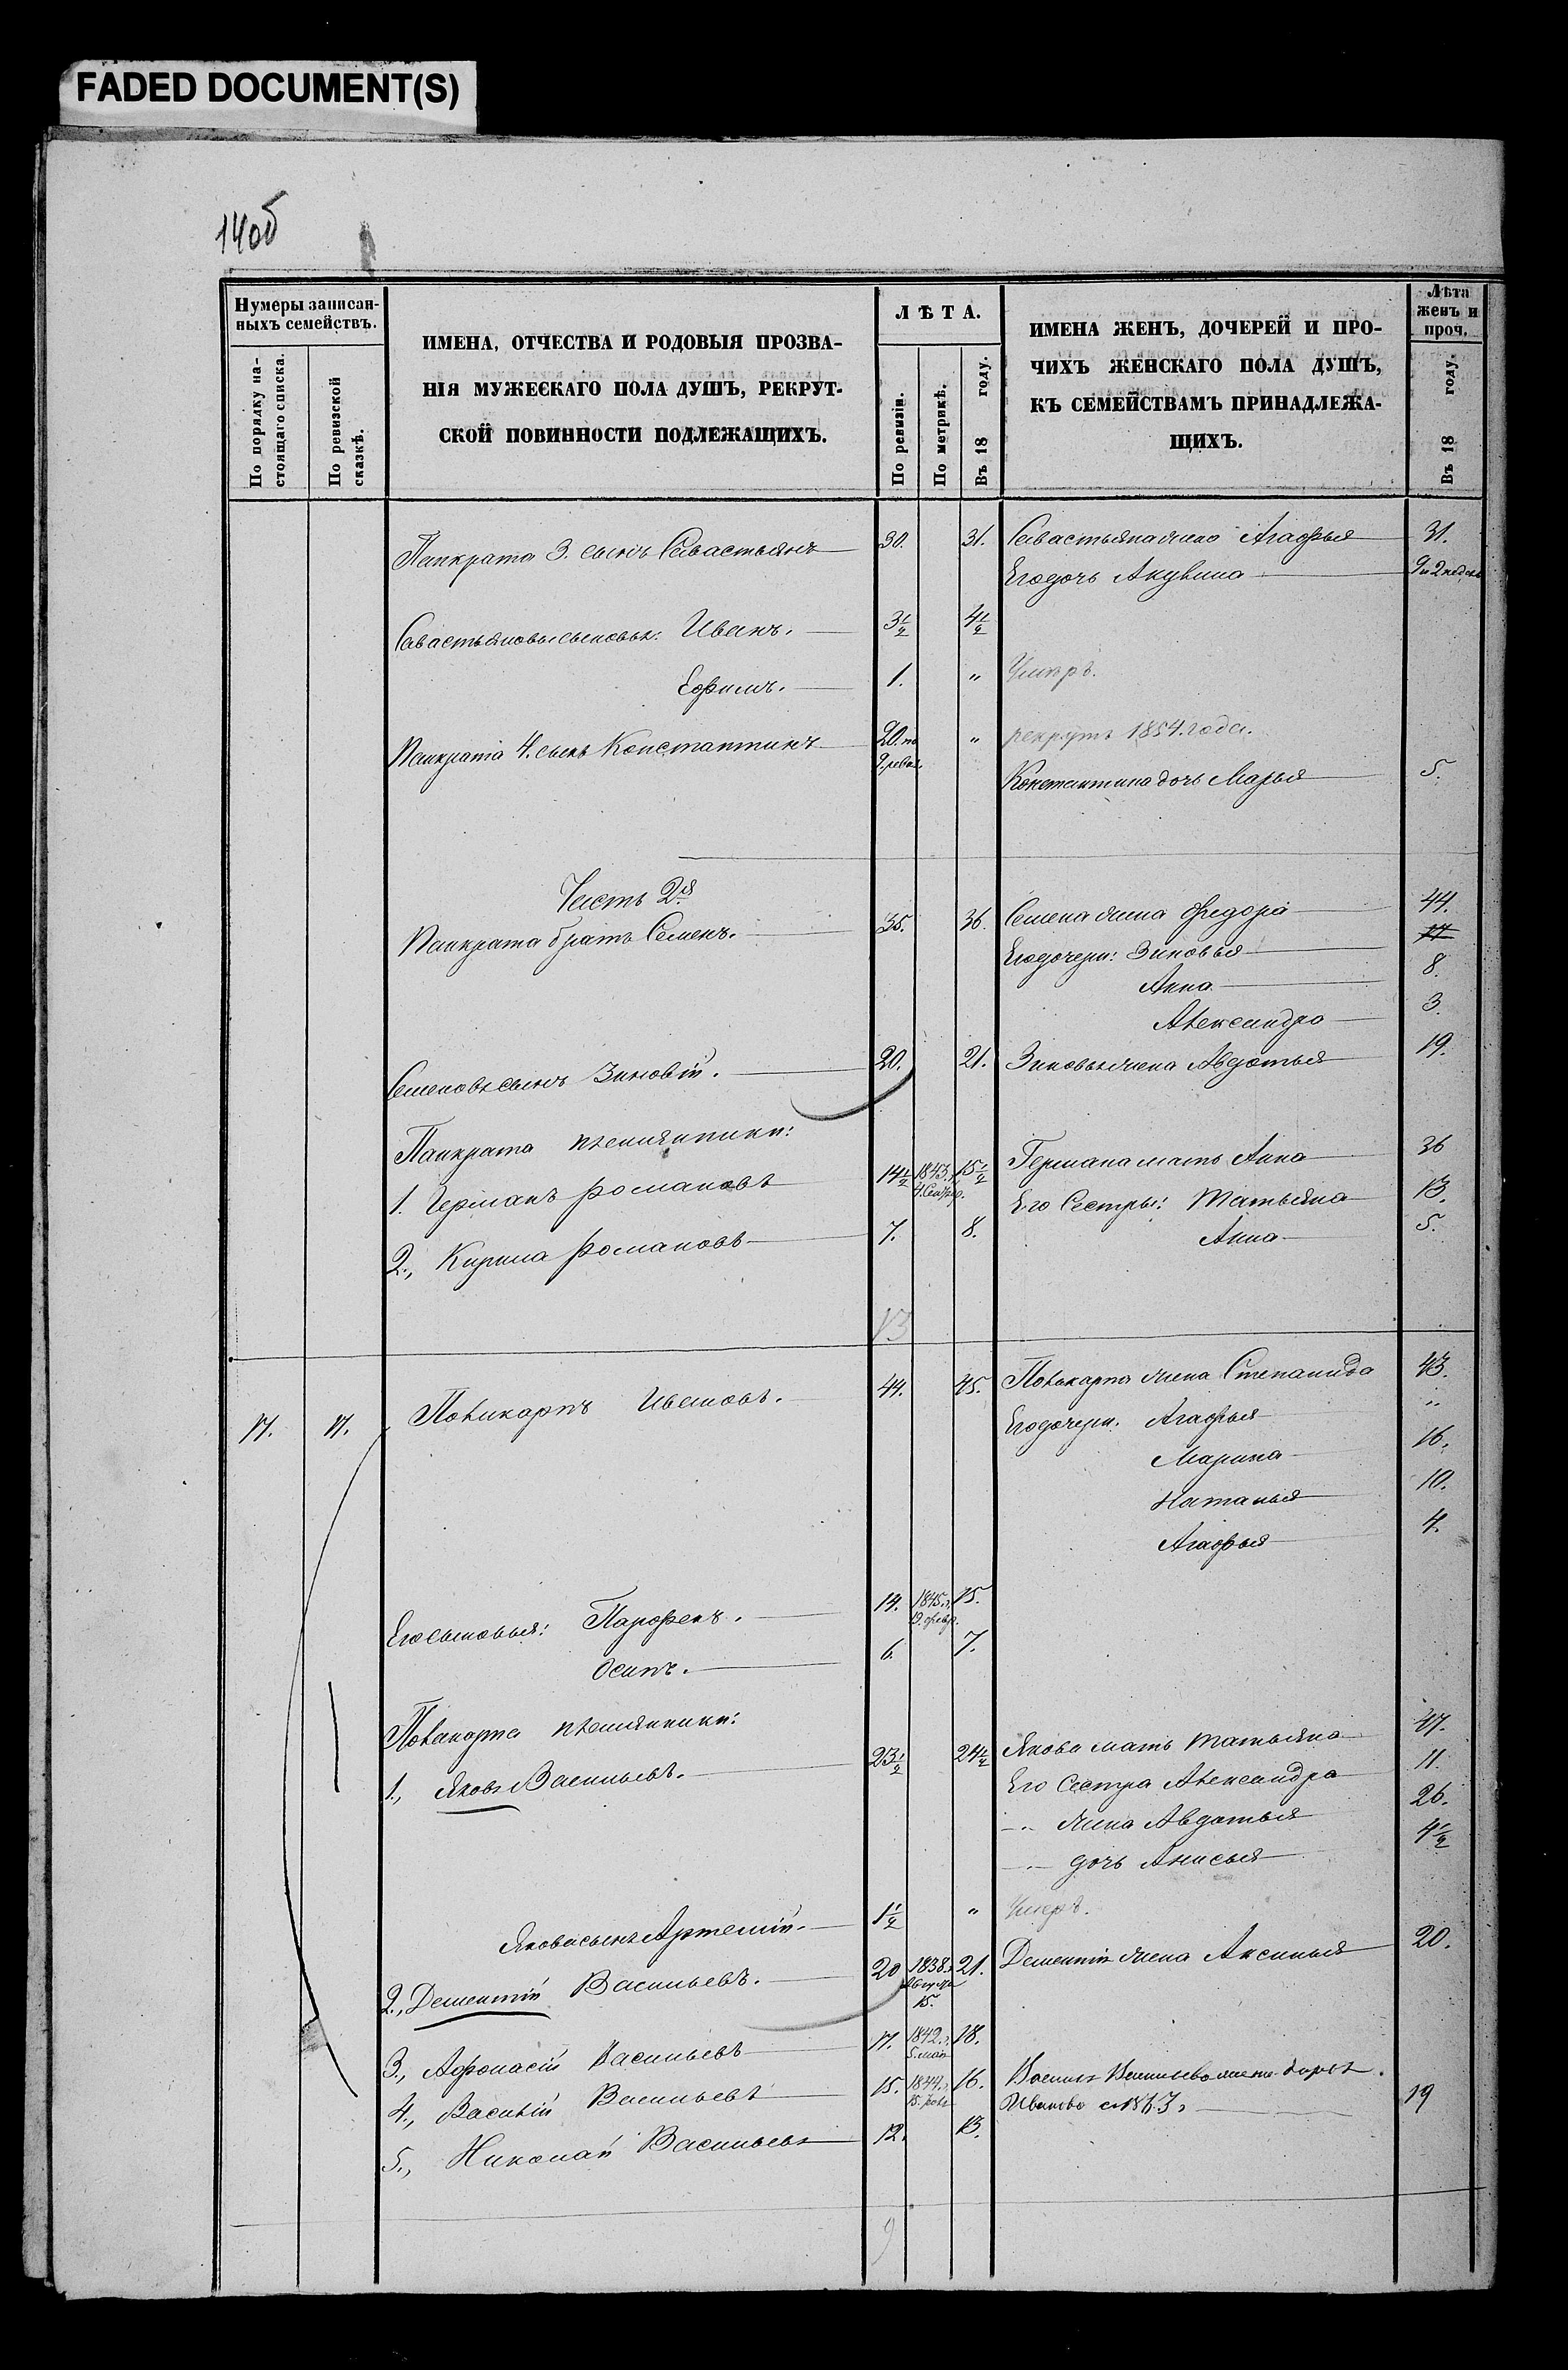 FADED DOCUMENT(S)
140б
Нумеры записан-
ныхъ семействъ.
По порядку на-
стоящаго списка.
По ревизской
сказкѣ.
ИМЕНА, ОТЧЕСТВА И РОДОВЫЯ ПРОЗВА-
НІЯ МУЖЕСКАГО ПОЛА ДУШЪ, РЕКРУТ-
СКОЙ ПОВИННОСТИ ПОДЛЕЖАЩИХЪ.
ЛѢТА.
По ревизіи.
По метрикѣ.
Въ 18 году.
ИМЕНА ЖЕНЪ, ДОЧЕРЕЙ И ПРО-
ЧИХЪ ЖЕНСКАГО ПОЛА ДУШЪ,
КЪ СЕМЕЙСТВАМЪ ПРИНАДЛЕЖА-
ЩИХЪ.
Лѣта
женъ и
проч.
Въ 18 году.
Панкрата 3. сынъ Савастьянъ 30. 31. Савастьяна жена Агафья 31.
Его дочь Акулина 9 и 2 недели
Савастьяновы сыновья: Иванъ. 3½ 4½
Ефимъ. 1. " Умеръ.
Панкрата 4. сынъ Константинъ 20. по 9. ревиз. " рекрутъ 1854. года.
Константина дочь Марья 5.
Часть 2я
Панкрата братъ Семенъ. 35. 36. Семена жена Федора 44.
Его дочери: Зиновья 17
Анна 8.
Александра 3.
Семеновъ сынъ Зиновій. 20. 21. Зиновья жена Авдотья 19.
Панкрата племянники:
1. Германъ Романовъ 14½ 1843. г. 4. Сентбр. 15½ Германа мать Анна 36
Его Сестры: Татьяна 13.
2., Кирила Романовъ 7. 8. Анна 5.
13
17. 17. Поликарпъ Ивановъ. 44. 45. Поликарпа жена Степанида 43.
Его дочери: Агафья "
Марина 16.
Наталья 10.
Агафья 4.
Его сыновья: Парфенъ. 14. 1845. г. 19. февр. 15.
Осипъ. 6. 7.
Поликарпа племянники:
1., Яковъ Васильевъ. 23½ 24½ Якова мать Татьяна 47.
Его Сестра Александра 11.
" жена Авдотья 26.
" дочь Анисья 4½
Якова сынъ Артемій. 1½ " Умеръ.
2., Дементій Васильевъ. 20 1838. г. Августа 15. 21. Дементія жена Аксинья 20.
3., Афонасій Васильевъ 17. 1842. г. 5. мая 18.
4., Василій Васильевъ 15. 1844. г. 16. Василья Васильева жена
Иванова с 1863 г. 19
5., Николай Васильевъ 12. 13.
9